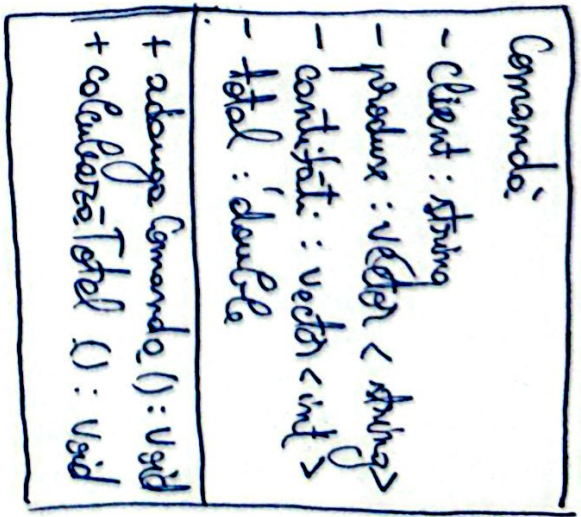 Comandă
- client : string
- produse : vector < string>
- cantități : vector < int >
- total : double
+ adauga Comanda () : void
+ calculeazaTotal () : void